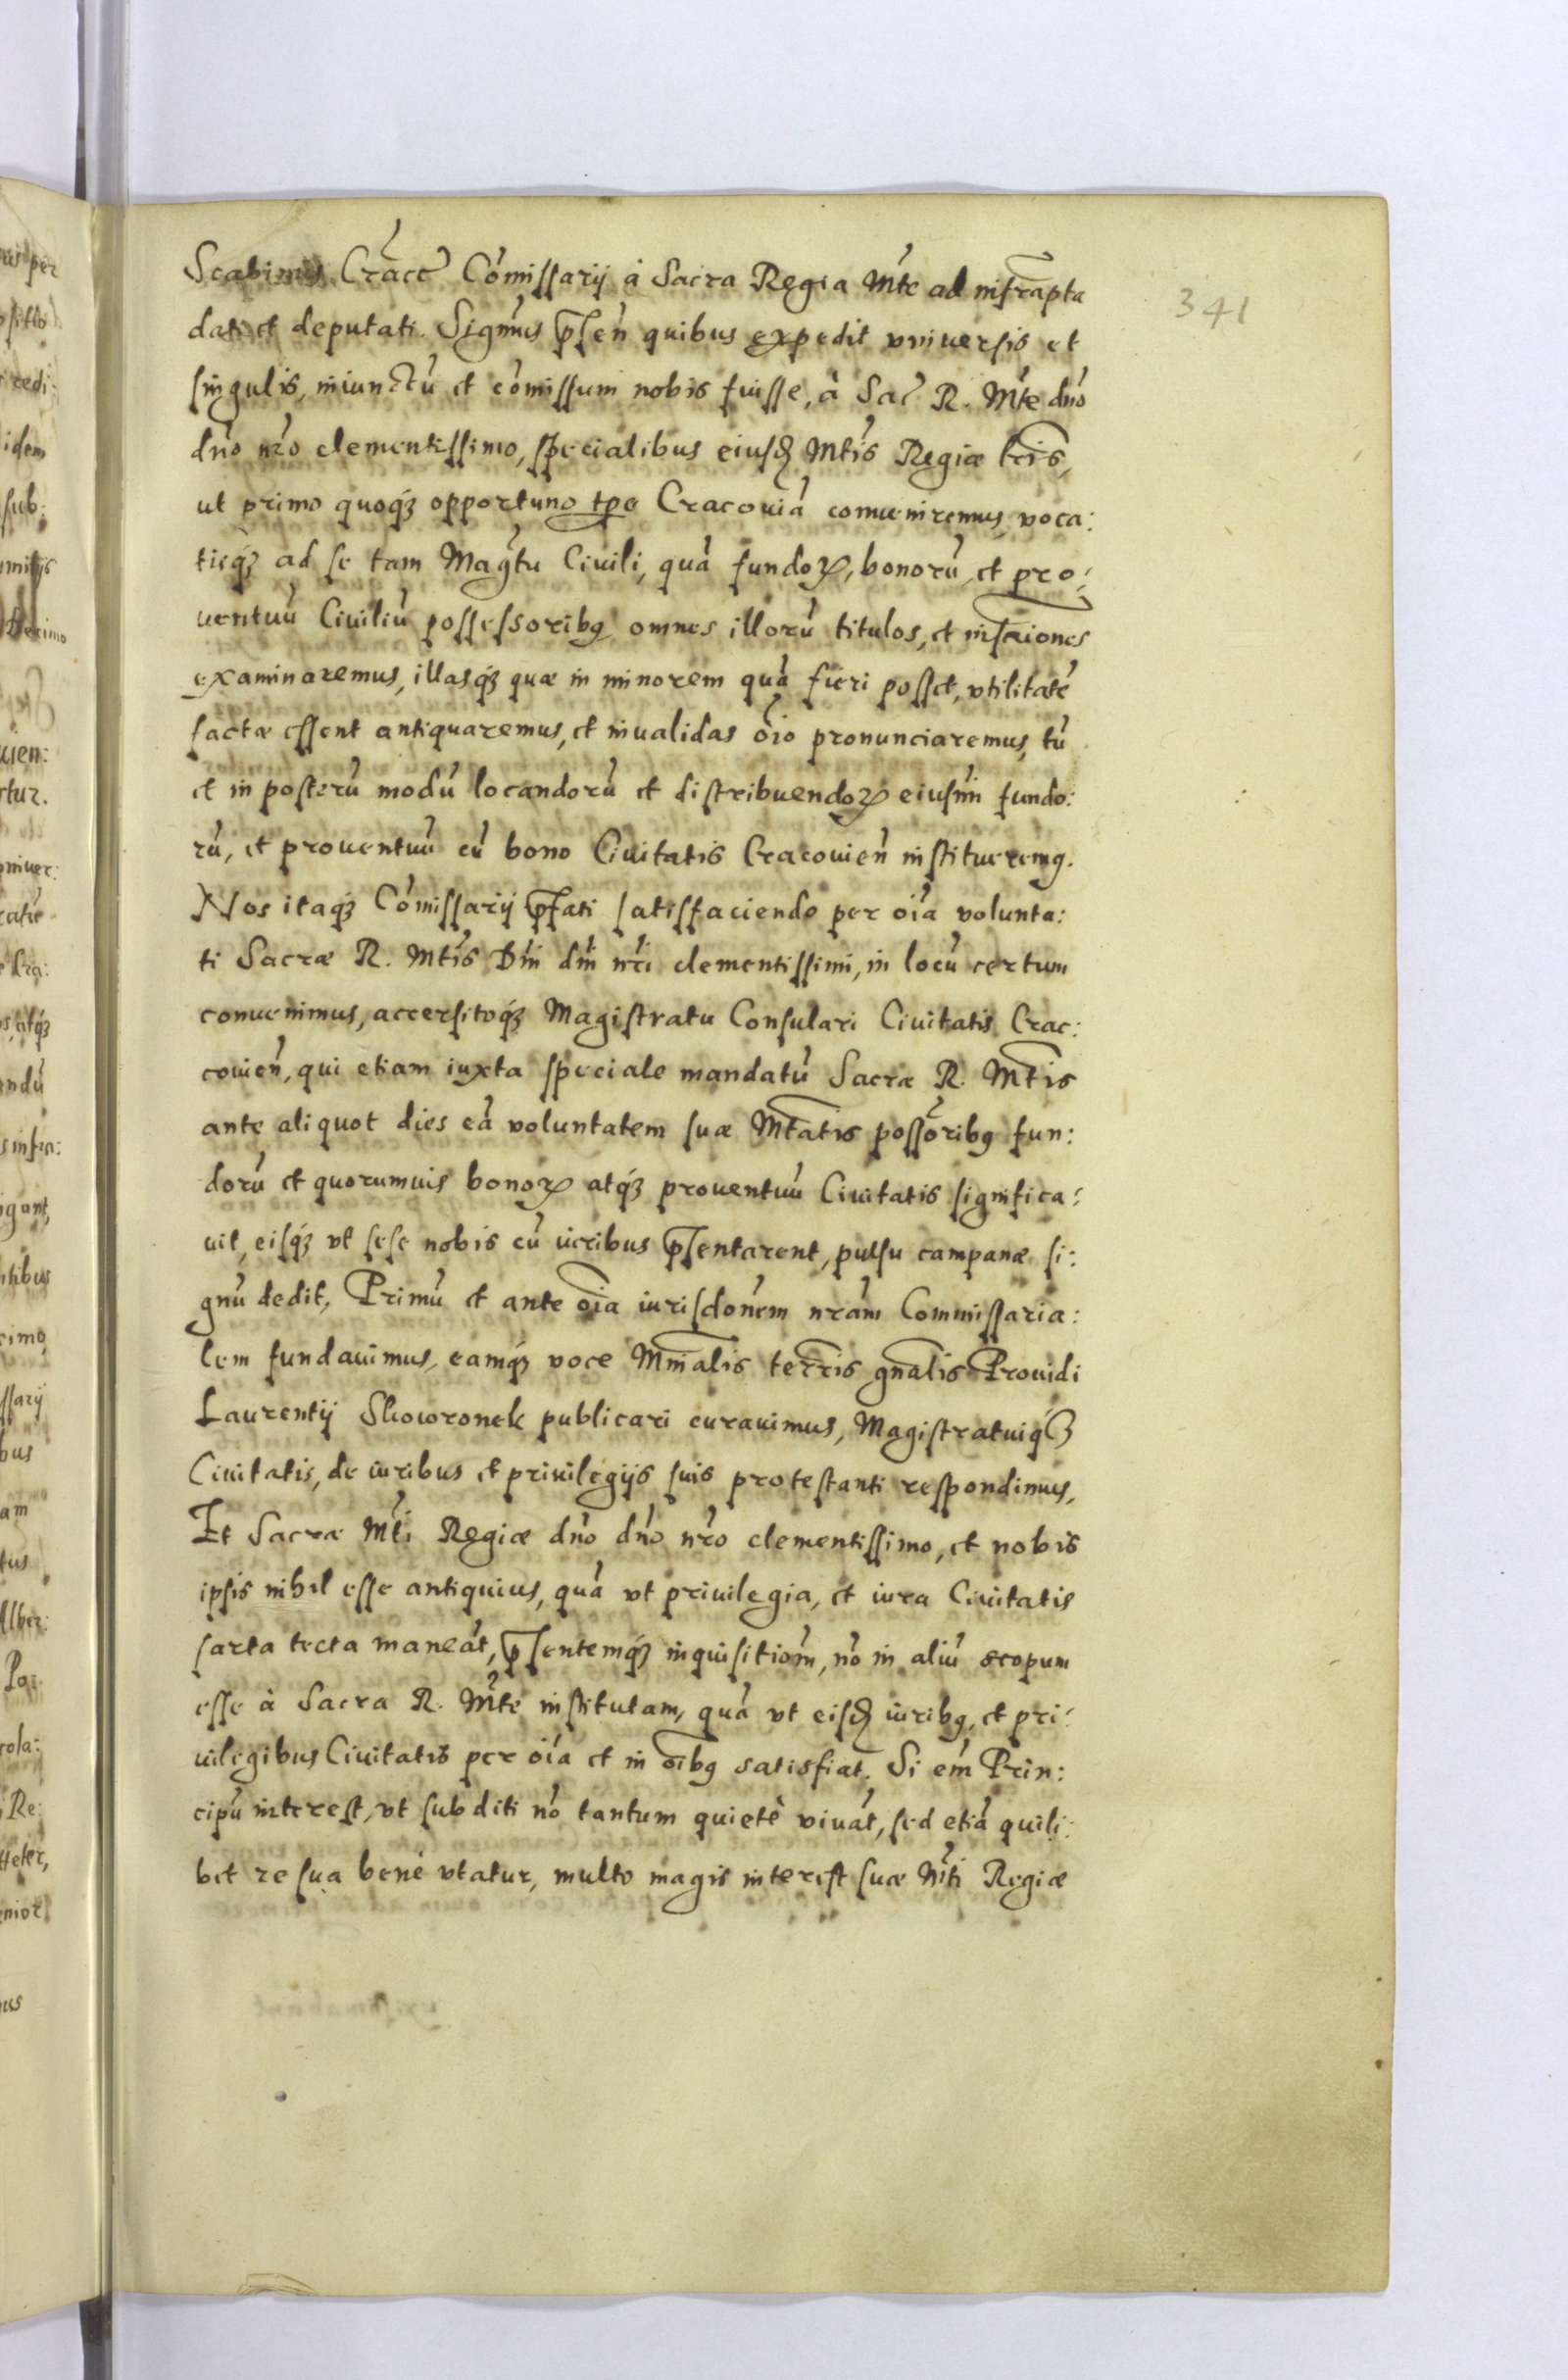 Scabinus Cracc̄ Co͂missarij à Sacra Regia Mt̃e ad infrapta
341
dati et deputati. Signm̃us p̄sen̄ quibus expedit vniuersis et
singulis, iniunctū et cōmissum nobis fuisse, à Sac̄ R. Mt̃e dn̄o
dn̄o nr̄o clementissimo, specialibus eiusdȝ Mt̃is Regiæ lr̄is,
ut primo quoq́ȝ opportuno tp̄e Cracouiā conueniremus, voca:
tisq́ȝ ad se tam Mag̃tu Ciuili, quā fundoꝝ, bonorū, et pro:
uentuū Ciuiliū possessoribꝯ omnes illorū titulos, et insc̄riones
examinaremus, illasq́ȝ quæ in minorem quā fieri posset, vtilitatē
factæ essent antiquaremus, et inualidas ōio pronunciaremus, tū
et in posterū modū locandorū et distribuendoꝝ eiusm̄i fundo:
rū, et prouentuū cū bono Ciuitatis Cracouien̄ institueremꝯ.
Nos itaq́ȝ Cōmissarij p̄fati satisfaciendo per oīa volunta:
ti Sacræ R. Mt̃is Dn̄i dn̄i nr̄i clementissimi, in locū certum
conuenimus, accersitoq́ȝ Magistratu Consulari Ciuitatis Crac:
couien̄, qui etiam iuxta speciale mandatū Sacræ R. Mt̃is
ante aliquot dies eā voluntatem suæ Mt̃atis poss̄oribꝯ fun:
dorū et quorumuis bonoꝝ atq́ȝ prouentuū Ciuitatis significa:
uit, eisq́ȝ vt sese nobis cū iuribus p̄sentarent, pulsu campanæ si:
gnū dedit, Primū et ante oīa iurisdōnem nr̄am Commissaria:
lem fundauimus, eamq́ȝ voce Mn̄ialis terr̄is gn̄alis Prouidi
Laurentij Skowronek publicari curauimus, Magistratuiq́ȝ
Ciuitatis, de iuribus et priuilegijs suis protestanti respondimus,
Et Sacræ Mt̃i Regiæ dn̄o dn̄o nr̄o clementissimo, et nobis
ipsis nihil esse antiquius, quā vt priuilegia, et iura Ciuitatis
sarta tecta maneāt, p̄sentemq́ȝ inquisitiōm, nō in aliū scopum
esse à Sacra R. Mt̃e institutam, quā vt eisdȝ iuribꝯ, et pri:
uilegibus Ciuitatis per oīa et in ōibꝯ satisfiat. Si em̄ Prin:
cipū interest, vt subditi nō tantum quietè viuāt, sed etiā quili:
bet re sua benè vtatur, multo magis interest suæ Mt̃i Regiæ